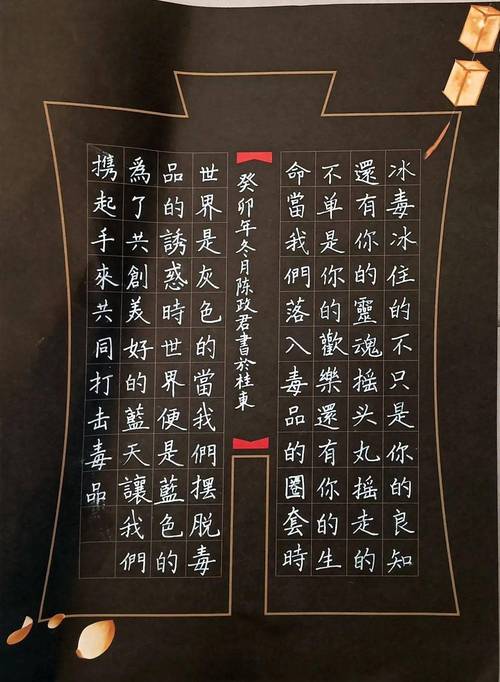 冰毒冰住的不只是你的良知
還有你的靈魂摇头丸摇走的
不单是你的歡樂還有你的生
命當我們落入毒品的圈套時
世界是灰色的當我們擺脱毒
品的誘惑時世界便是藍色的
爲了共創美好的藍天讓我們
携起手來共同打击毒品
癸卯年冬月陈政君書於桂東